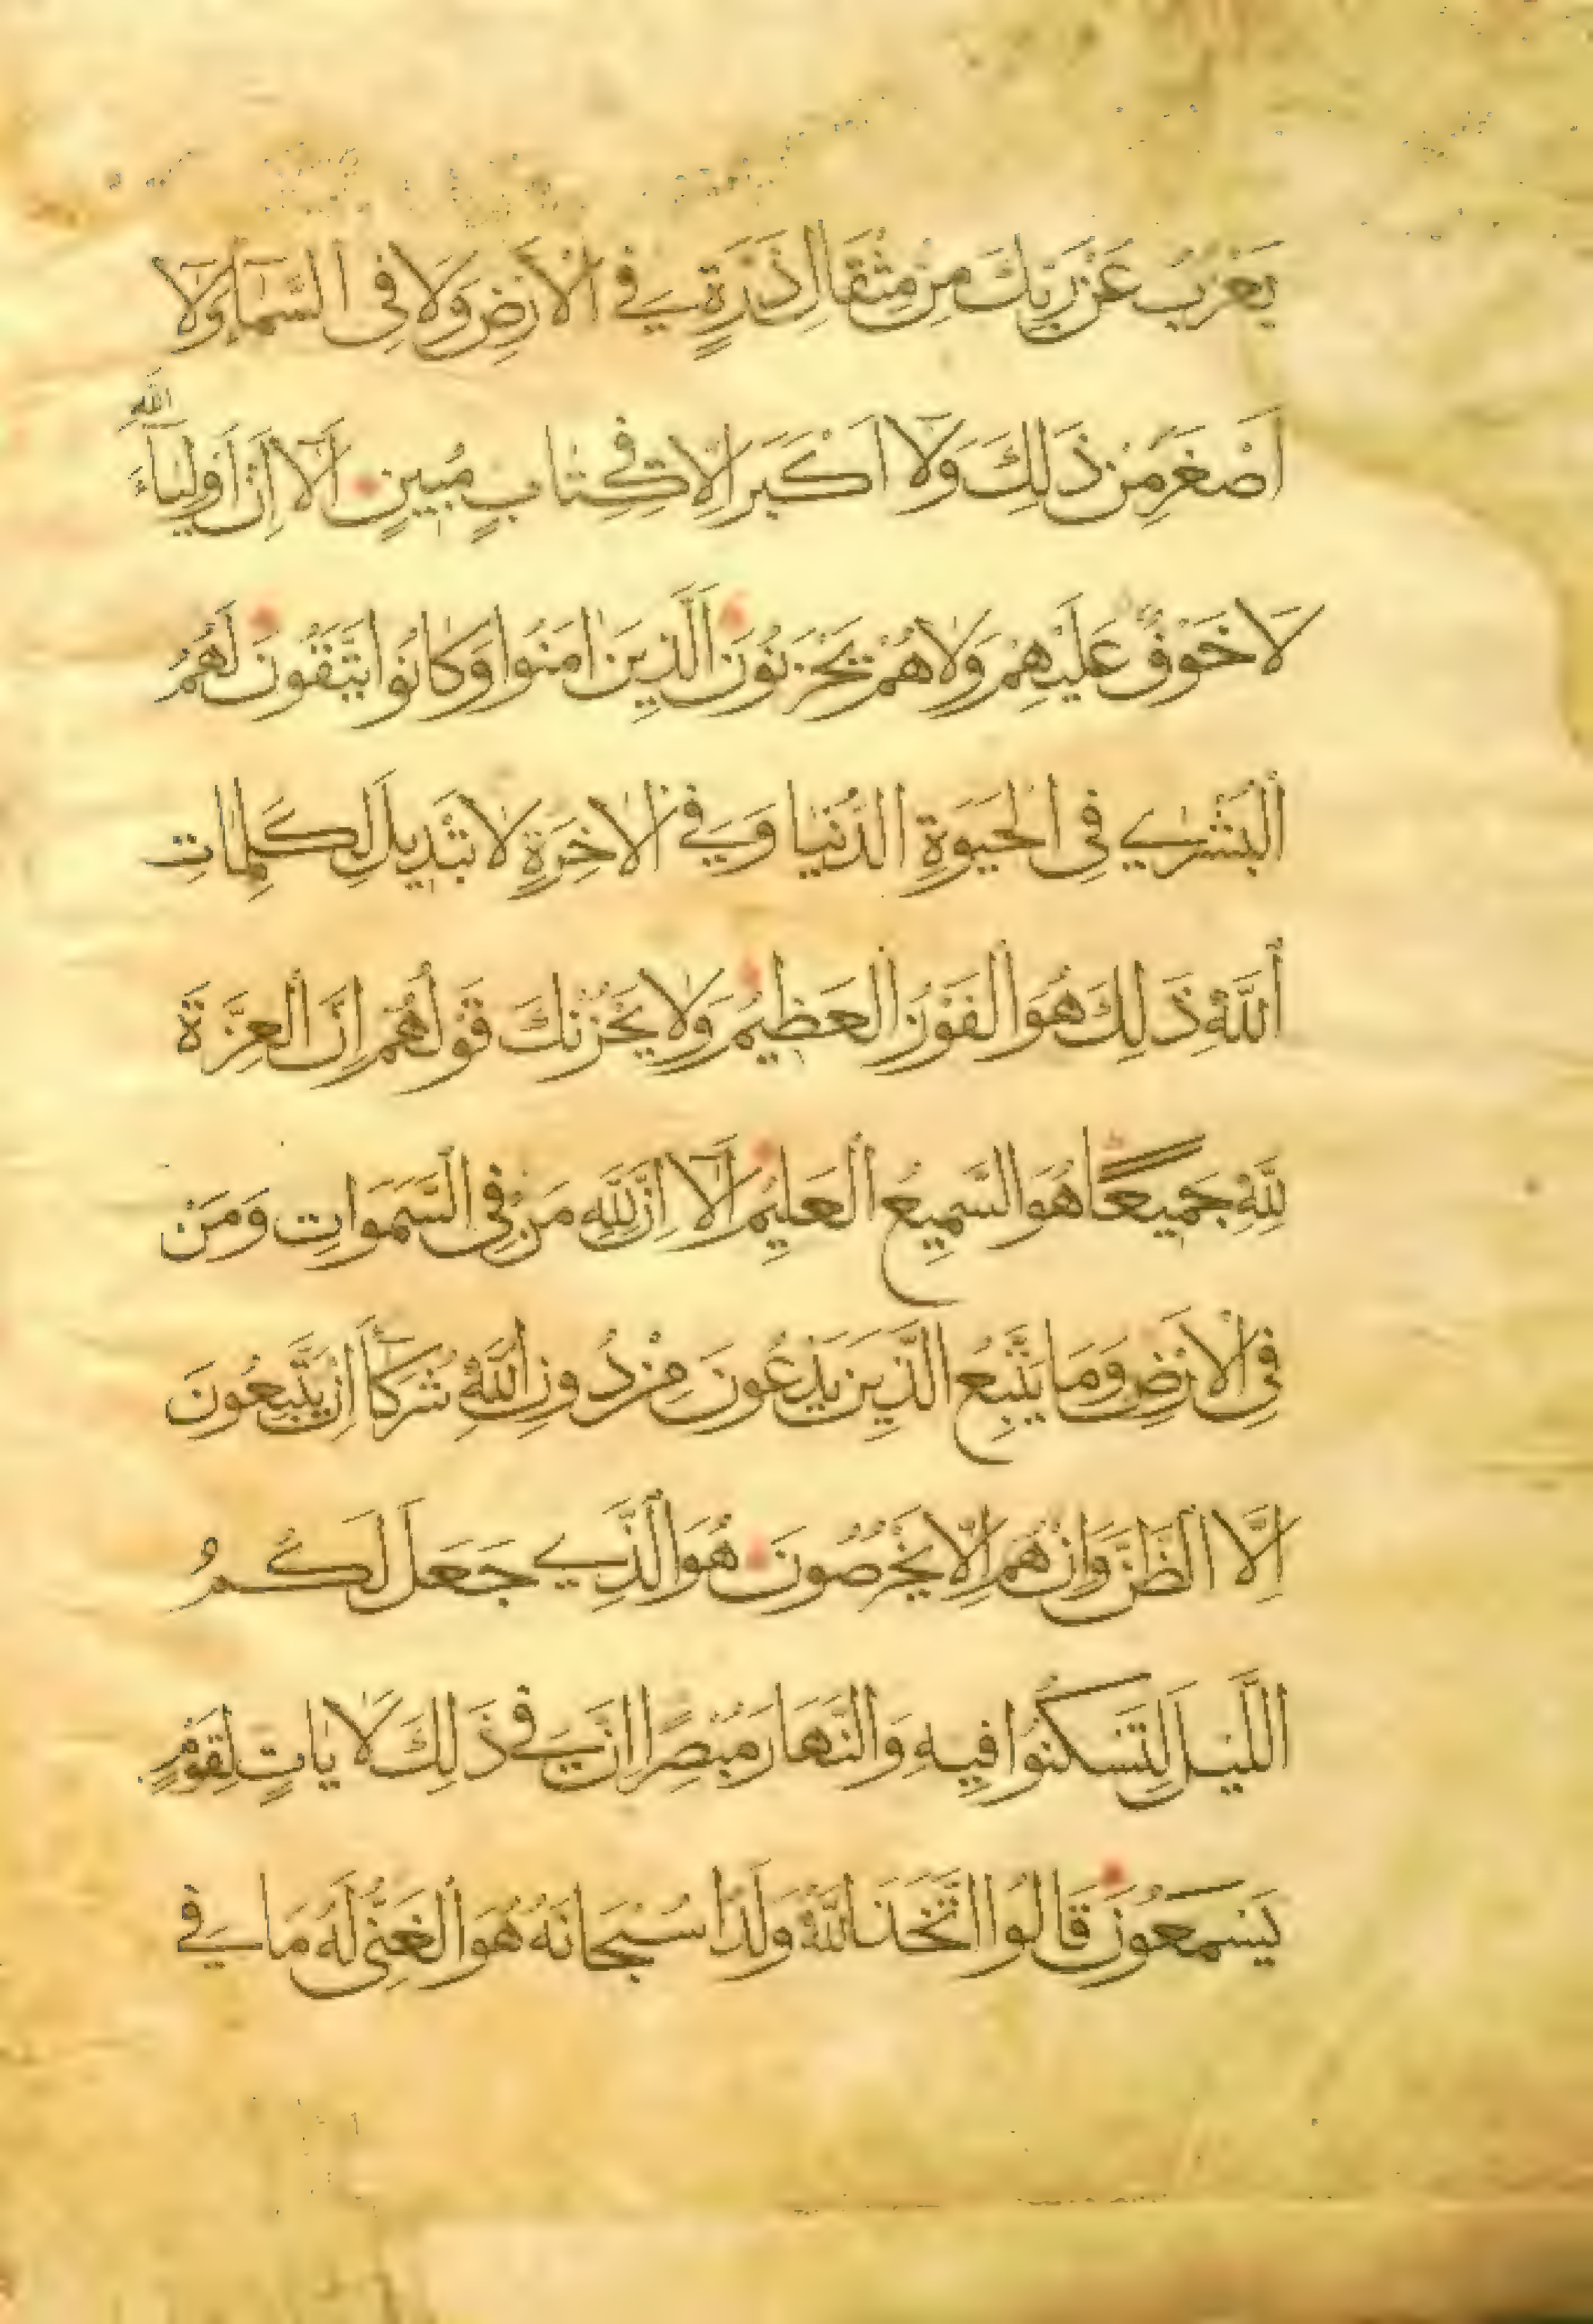 يَعْزُبُ عَنْ رَبِّكَ مِنْ مِثْقَالِ ذَرَّةٍ فِي الْأَرْضِ وَلَا فِي السَّمَاءِ وَلَا
اَصْغَرَ مِنْ ذَلِكَ وَلَا اَكْبَرَ اِلَّا فِي كِتَابٍ مُبِينٍ اَلَا اِنَّ اَوْلِيَاءَ اللَّهِ
لَا خَوْفٌ عَلَيْهِمْ وَلَا هُمْ يَحْزَنُونَ الَّذِينَ امَنُوا وَكَانُوا يَتَّقُونَ لَهُمُ
الْبُشْرَى فِي الْحَيَوةِ الدُّنْيَا وَفِي الْاخِرَةِ لَا تَبْدِيلَ لِكَلِمَاتِ
اللَّهِ ذَلِكَ هُوَ الْفَوْزُ الْعَظِيمُ وَلَا يَحْزُنْكَ قَوْلُهُمْ اِنَّ الْعِزَّةَ
لِلَّهِ جَمِيعًا هُوَ السَّمِيعُ الْعَلِيمُ اَلَا اِنَّ لِلَّهِ مَنْ فِي السَّمَوَاتِ وَمَنْ
فِي الْأَرْضِ وَمَا يَتَّبِعُ الَّذِينَ يَدْعُونَ مِنْ دُونِ اللَّهِ شُرَكَاءَ اِنْ يَتَّبِعُونَ
اِلَّا الظَّنَّ وَاِنْ هُمْ اِلَّا يَخْرُصُونَ هُوَ الَّذِي جَعَلَ لَكُمُ
اللَّيْلَ لِتَسْكُنُوا فِيهِ وَالنَّهَارَ مُبْصِرًا اِنَّ فِي ذَلِكَ لَايَاتٍ لِقَوْمٍ
يَسْمَعُونَ قَالُوا اتَّخَذَ اللَّهُ وَلَدًا سُبْحَانَهُ هُوَ الْغَنِيُّ لَهُ مَا فِي